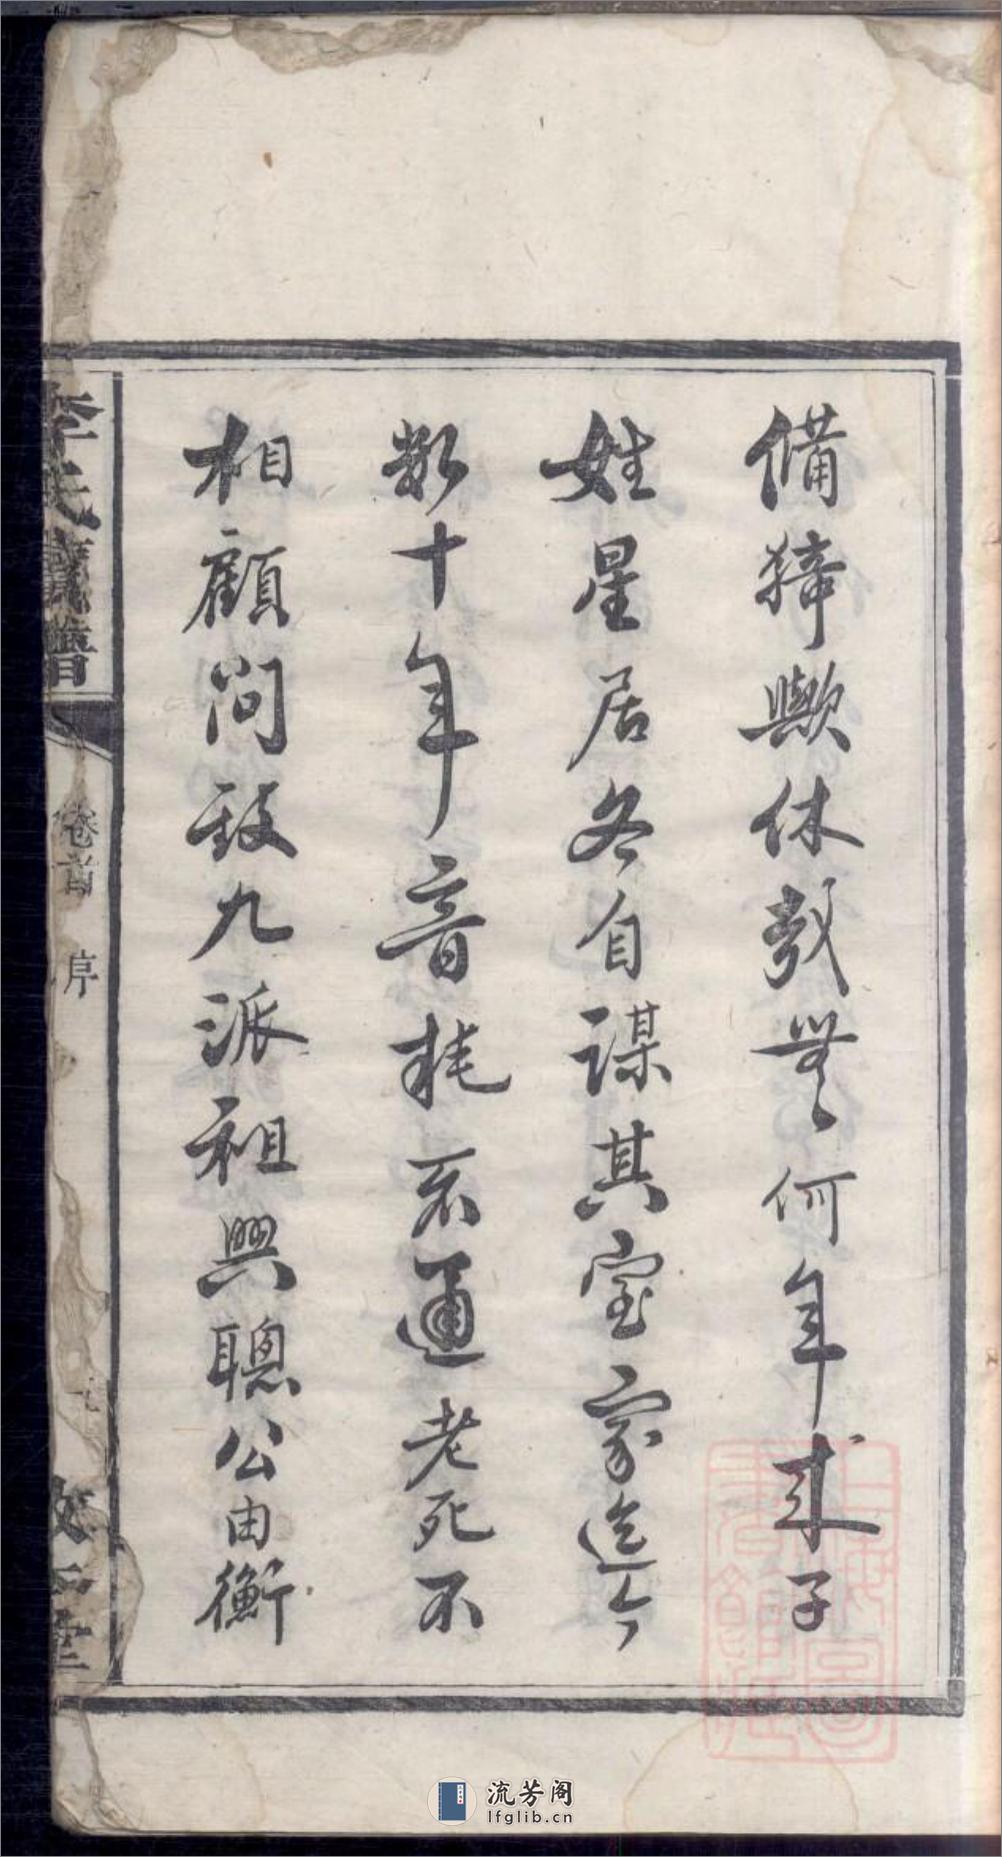 備猗歟休哉無何年來子
姓星居各自謀其室家迄今
数十年音耗不通老死不
相顧問致九派祖興聰公由衡
李氏族譜
卷首 序
流芳阁
lfglib.cn